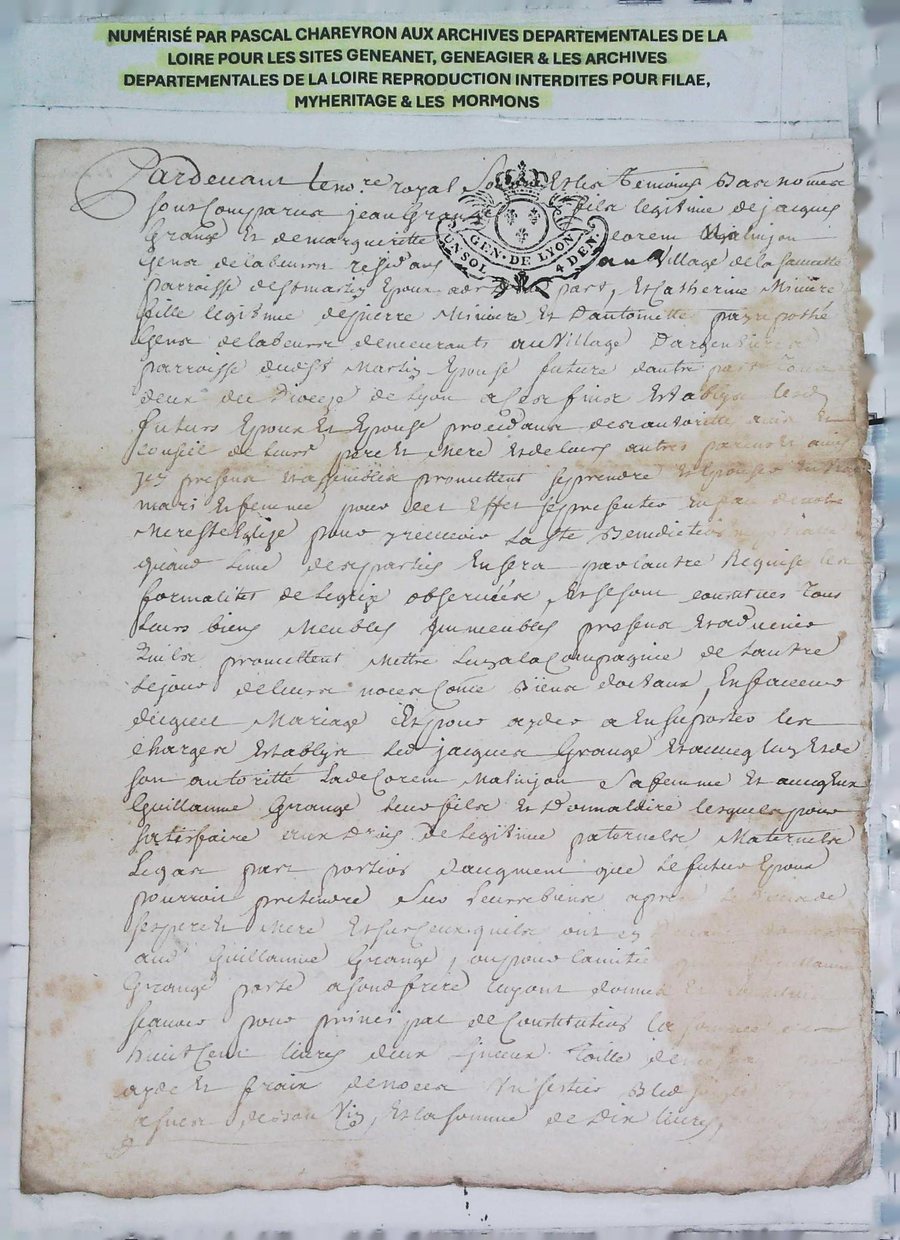 NUMÉRISÉ PAR PASCAL CHAREYRON AUX ARCHIVES DEPARTEMENTALES DE LA
LOIRE POUR LES SITES GENEANET, GENEAGIER & LES ARCHIVES
DEPARTEMENTALES DE LA LOIRE REPRODUCTION INTERDITES POUR FILAE,
MYHERITAGE & LES MORMONS
Pardevant le no.re royal Et les Temoins Bas només
sont Comparus jean Grange fils legitime de jacques
Grange Et de margueritte
GEN. DE LYON
UN SOL 4 DEN.
Gens de labeurs residans au Village de la
parroisse de st martin Epoux part, Et Catherine Miniere
fille legitime de pierre Miniere Et d'antoinette
Gens de labeurs demeurants au Village
parroisse dudt st Martin Epouse future dautre part Tous
deux du Dioceze de Lyon a ses fins Establys lesd
futurs Epoux Et Epouse procedans de autorité Et
Conseil de leurs pere Et Mere Et de leurs autres parents Et amis
jcy presens Et assemblés promettent se prendre Et Epouser En
mari Et femme pour cet Effet se presenter En face de notre
Mere ste Eglize pour y recevoir La ste Benediction
quand L'une des parties En sera par lautre Requise les
formalités de observées, Et se sont constitués Tous
Leurs biens Meubles jmmeubles presens Et advenir
Quils promettent Mettre a la Compagnie de Lautre
Le jour de leurs noces Come Biens dotaux, En faveur
duquel Mariage Et pour ayder a En suporter les
charges Establys Led jacques Grange Et avecq luy Et de
son autoritté Lad Malinjon sa femme Et avecq Eux
Guillaume Grange leur fils Et Donnataire lesquels pour
satisfaire aux Droits De Legitime paternels Maternels
Legas part portion daugment que le futur Epoux
pourroit pretendre sur Leurs biens apres Le Deces de
ses pere Et Mere Et sur Ceux quils ont
aud Guillaume Grange, ou pour lamitié
Grange porte a sond frere luy ont donné Et
scavoir pour principal de Constitution la somme de
huit Cent livres deux
ayde Et frais de noces Un sestier Bled
Et la somme de Dix livres,